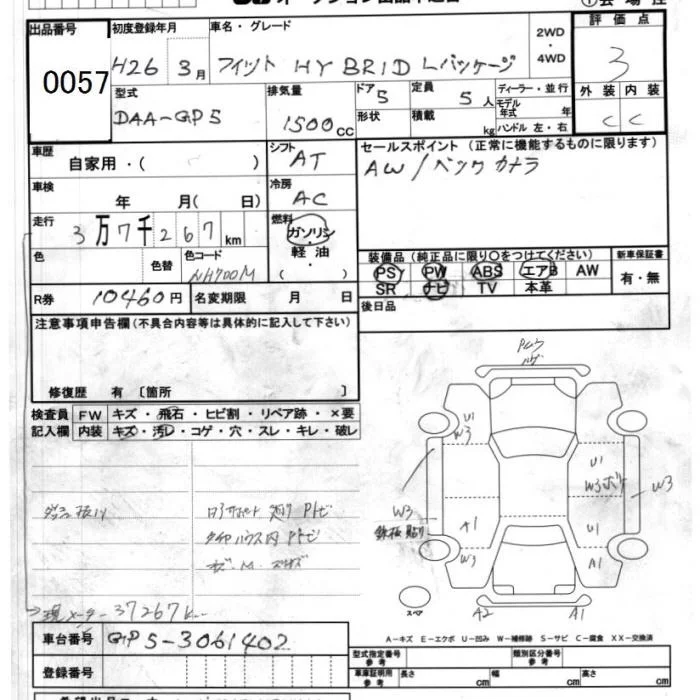 出品番号
0057
初度登録年月
H26 3月
車名・グレード
フィット HYBRID Lパッケージ
2WD
・
4WD
評価点
3
外装 内装
C C
型式
DAA-GP5
排気量
1500cc
ドア 5
形状
定員 5人
積載 kg
ディーラー・並行
モデル年式 年
ハンドル 左・右
車歴
自家用・( )
シフト
AT
セールスポイント (正常に機能するものに限ります)
AW/バックカメラ
車検
年 月( 日)
冷房
AC
走行
3万7千267km
燃料
ガソリン
・
軽油
・
( )
色
色替
色コード
NH700M
装備品(純正品に限り○をつけてください)
新車保証書
PS PW ABS エアB AW
有・無
SR ナビ TV 本革
R券 10460円
名変期限 月 日
後日品
注意事項申告欄(不具合内容等は具体的に記入して下さい)
修復歴 有 〔箇所 〕
検査員
記入欄
FW キズ・飛石・ヒビ割・リペア跡・×要
内装 キズ・汚レ・コゲ・穴・スレ・キレ・破レ
U1
W3
U1
W3ボケ
W3
W3
鉄板貼り
A1
U1
W3
A1
スペア
A2
A1
タイヤハウス内 Pトビ
現メーター37267k
A-キズ E-エクボ U-凹み W-補修跡 S-サビ C-腐食 XX-交換済
車台番号 GP5-3061402
登録番号
型式指定番号
参考
類別区分番号
参考
車庫証明用
参考
長さ cm 幅 cm 高さ cm